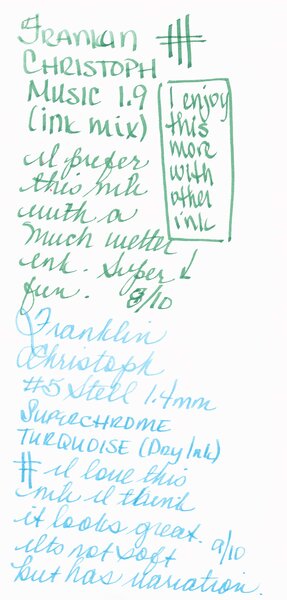 FRANKLIN
CHRISTOPH
MUSIC 1.9
(ink mix)
I enjoy
this
more
with
other
ink
I prefer
this nib
with a
much wetter
ink. Super
fun. 8/10
Franklin
Christoph
#5 Stell 1.4mm
SUPERCHROME
TURQUOISE (Dry Ink)
I love this
nib I think
it looks great. 9/10
Its not soft
but has variation.